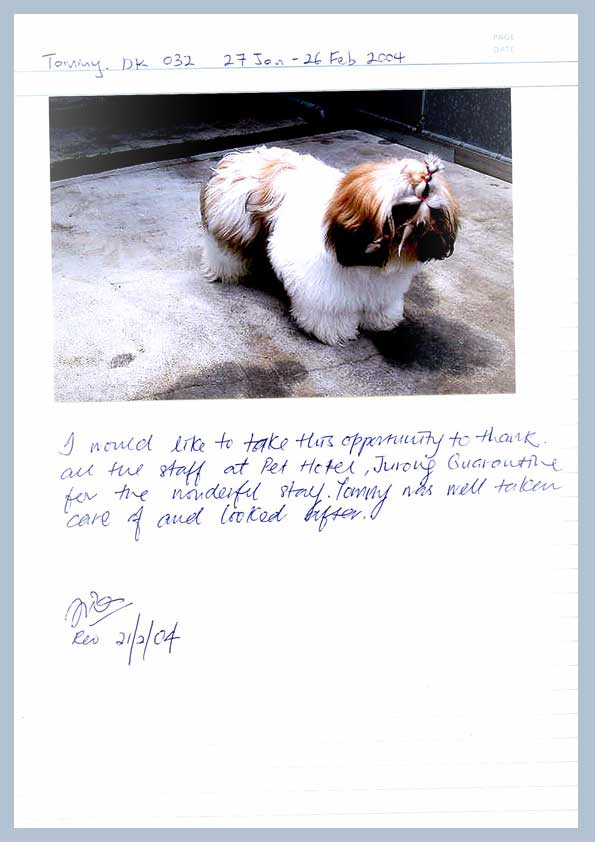 PAGE
DATE
Tommy. DK 032 27 Jan - 26 Feb 2004
I would like to take this opportunity to thank.
all the staff at Pet Hotel, Jurong Quarantine
for the wonderful stay. Tommy was well taken
care of and looked after.
21/2/04